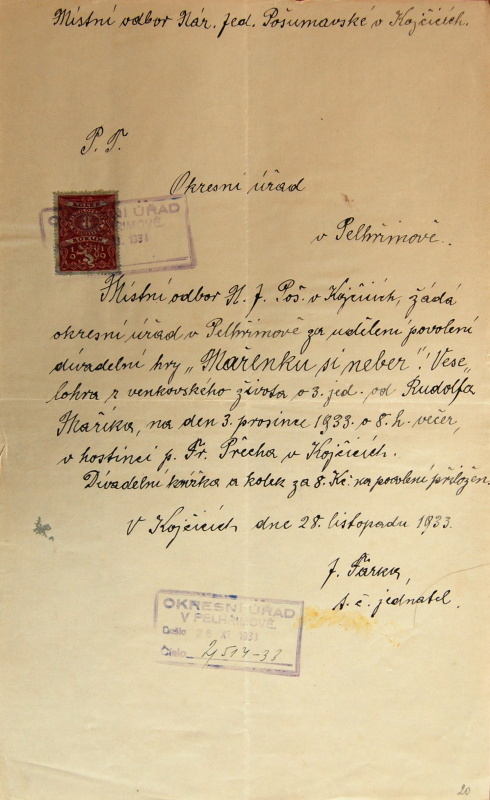 Místní odbor Nár. Jed. Pošumavské v Kojčicích.
P. T.
Okresní úřad
v Pelhřimově.
KOLEK
KORUN
5
OKRESNÍ ÚŘAD
1931
Místní odbor N. J. Poš. v Kojčicích, žádá
okresní úřad v Pelhřimově za udělení povolení
divadelní hry „Mařenku si neber"! Vese„
lohra z venkovského života o 3. jed. od Rudolfa
Maříka, na den 3. prosince 1933. o 8. h. večer,
v hostinci p. Fr. Přecha v Kojčicích.
Divadelní knížka a kolek za 8. Kč. na povolení přiložen.
V Kojčicích dne 28. listopadu 1933.
J. Párka,
t. č. jednatel.
OKRESNÍ ÚŘAD
V PELHŘIMOVĚ.
Došlo 29 XI 1931
Číslo 21514-33
20